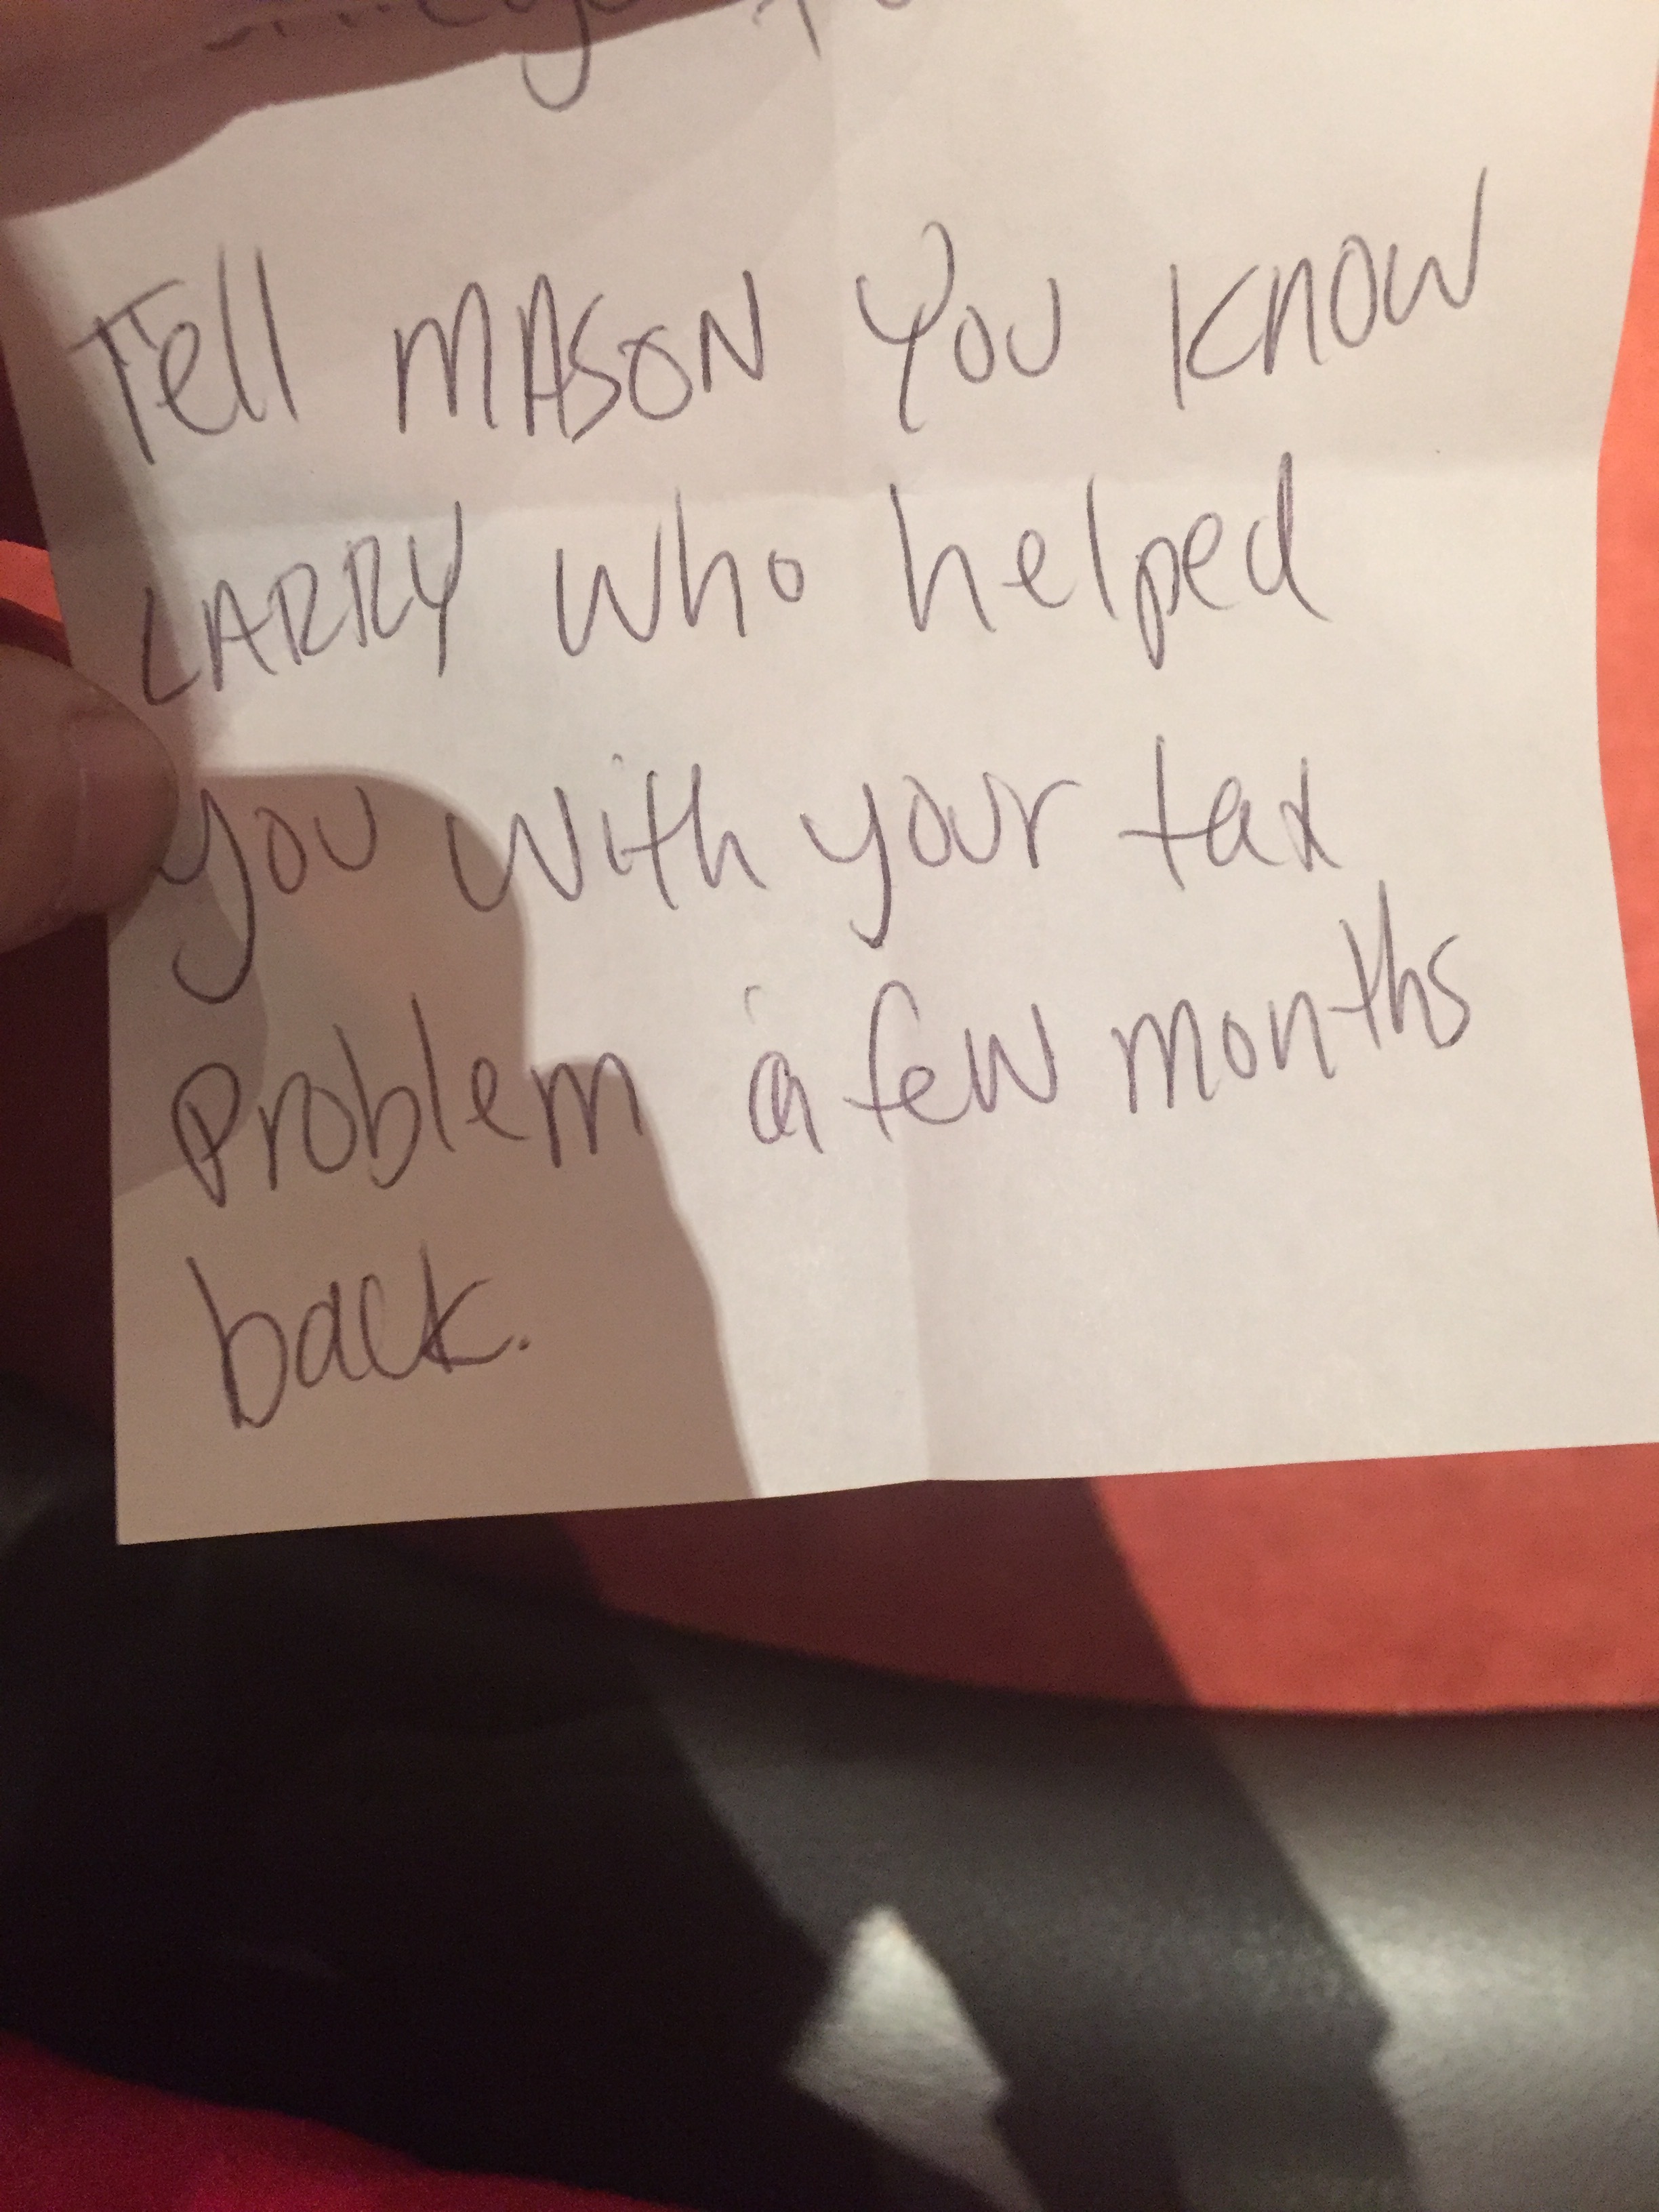 Tell MASON YOU KNOW
LARRY who helped
you with your tax
problem a few months
back.